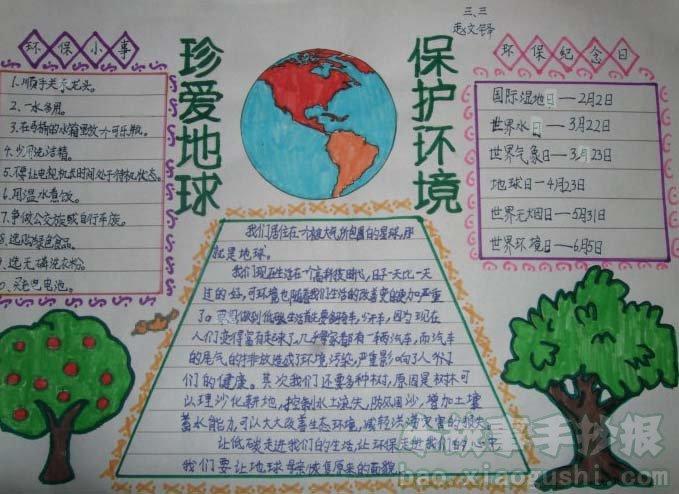 三、3
赵文铎
环保小事
1.顺手关水龙头。
2、一水多用。
3.在马桶的水箱里放个可乐瓶。
4.少用洗洁精。
5.不要让电视机长时间处于待机状态。
6.用温水煮饭。
7.争做公交族或自行车族。
8.选购绿色食品。
9.选无磷洗衣粉。
电池。
珍爱地球
保护环境
环保纪念日
国际湿地日—2月2日
世界水日—3月22日
世界气象日—3月23日
地球日—4月23日
世界无烟日—5月31日
世界环境日—6月5日
我们居住在一个被大气所包围的星球,那
就是地球。
我们现在生活在一个高科技时代,日子一天比一天
过的好,可环境也随着我们生活的改善变的更加严重
了。做到低碳生活首先要骑车,少开车,因为现在
人们变得富有起来了,几乎家家都有一辆汽车,而汽车
的尾气的排放造成了环境污染,严重影响了人
们的健康。其次我们还要多种树,原因是树林可
以理沙化耕地,控制水土流失,防风固沙,增加土壤
蓄水能力,可以大大改善生态环境,减轻洪涝灾害的损失。
让低碳走进我们的生活,让环保走进我们的心中
我们要让地球母亲恢复原来的面貌。
手抄报
bao.xiaogushi.com